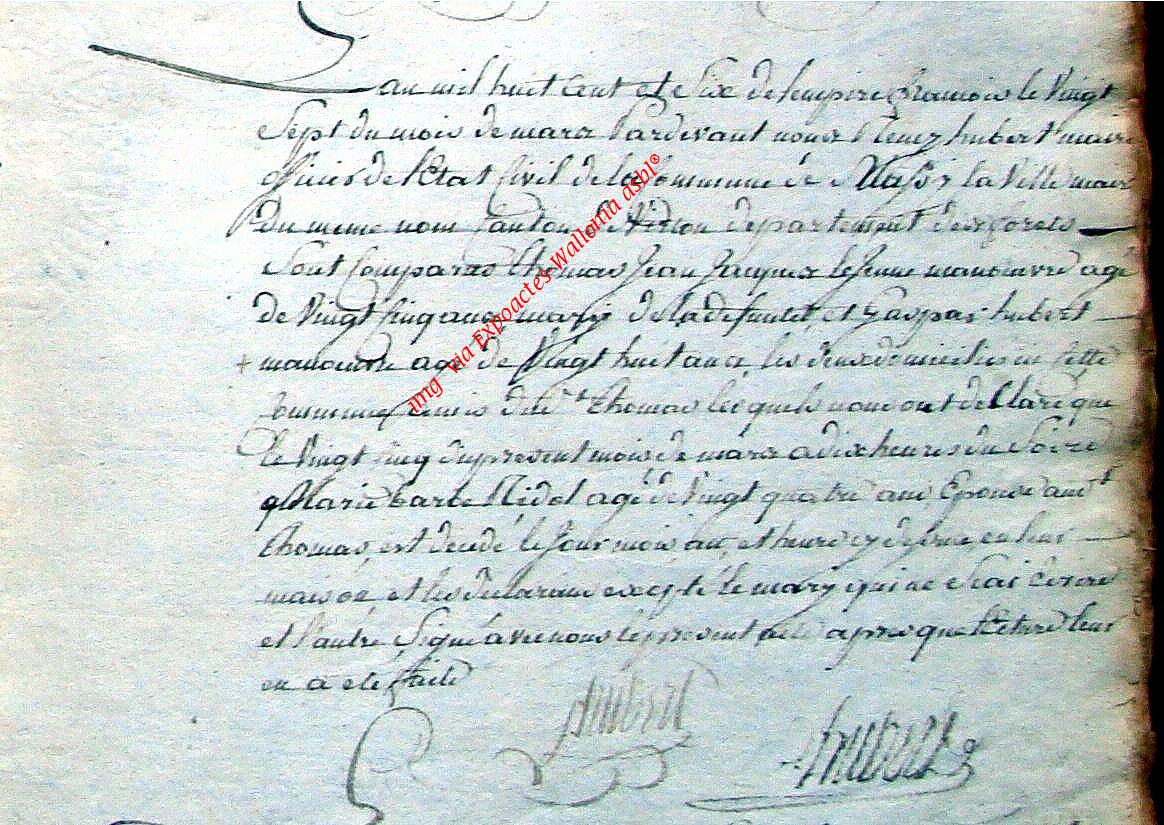 L'an mil huit cent et six de l'empire francois le vingt
sept du mois de mars Pardevant nous hubert maire
officier de l'Etat Civil de la Commune de la ville mairie
Du meme nom Canton de Virton departement des forets
Sont Comparus Thomas Jean Jacques le Jeune manoeuvre agé
de vingt Cinq ans, mary de la defunte, et Gaspar hubert
+ manoeuvre agé de Vingt huit ans les deux domiciliés en cette
Commune, amis dudt Thomas lesquels nous ont declaré que
le Vingt Cinq du present mois de mars a dix heures du Soire
Marie Barbe Nidol agé de Vingt quatre ans, Epouse audt
Thomas, est decedé le Jour mois an, et heure cy dessus, en leur
maison, et les declarans excepté le mary qui ne scai ecrire
et l'autre Signé avec nous le present acte apres que lecture leur
en a eté faite
hubert
hubert
img via Expoactes Wallonia asbl®